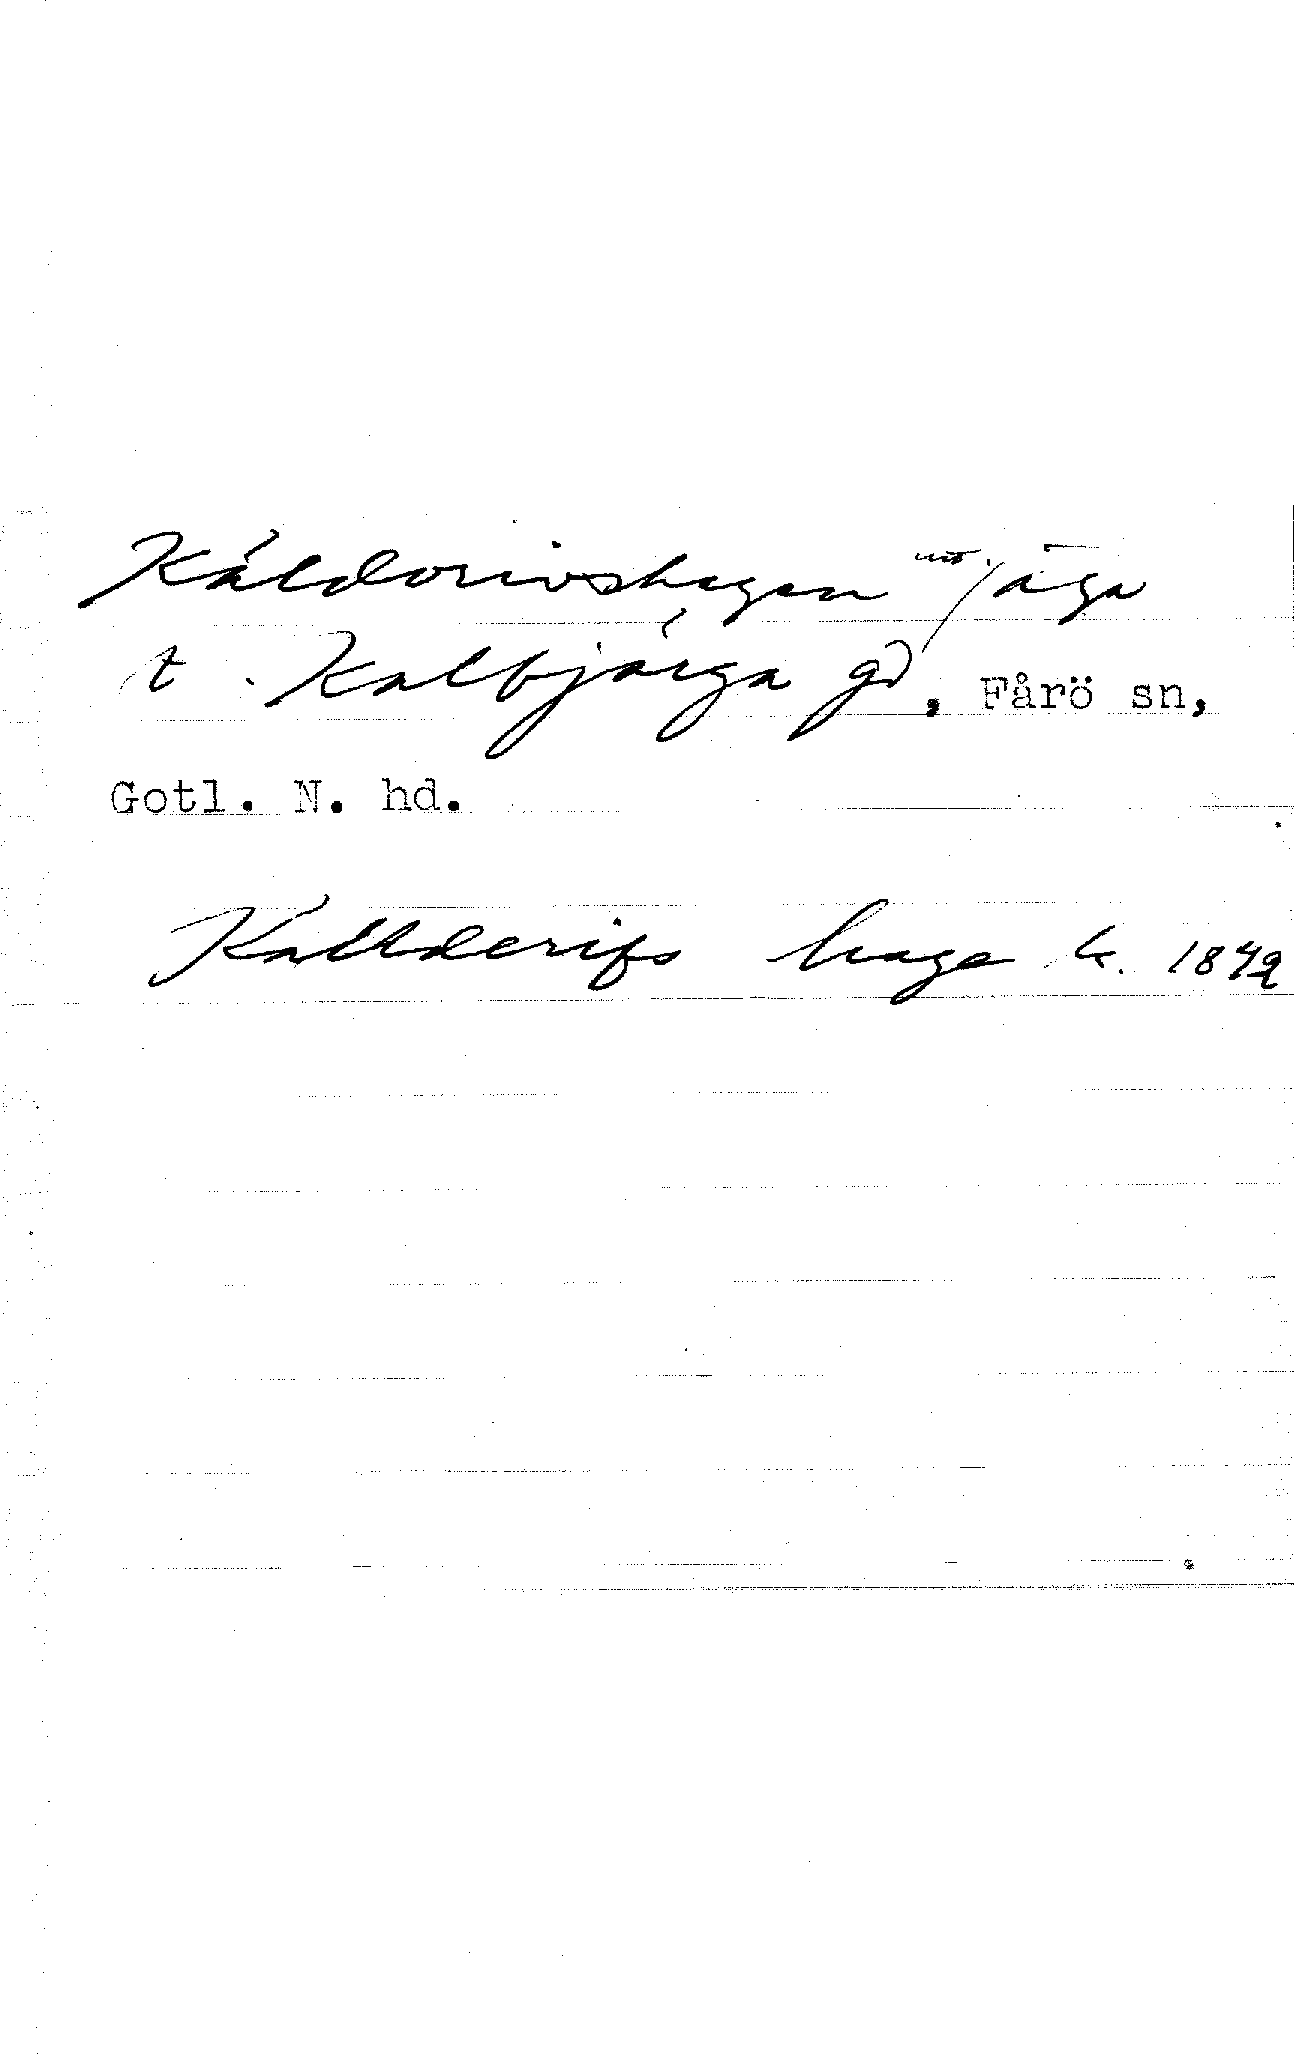 Káldorivshagen äga
t. Kalbjárga gd, Fårö sn,
Gotl. N. hd.
Kallderifs hage k. 1842